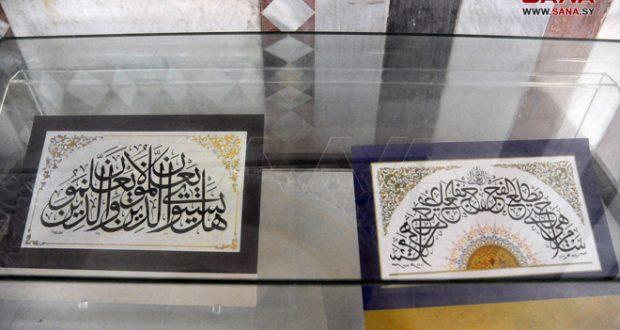 SANA
WWW.SANA.SY
هل يستوي الذين يعلمون والذين لا يعلمون
سلام هي حتى مطلع الفجر